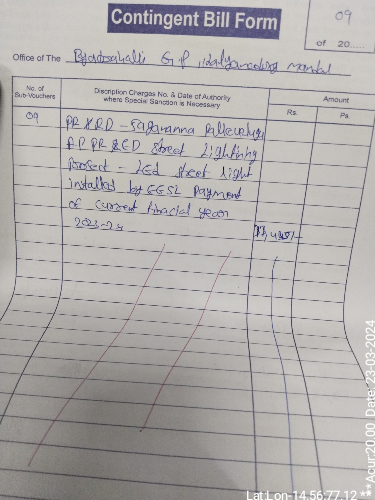 Contingent Bill Form
09
of 20......
Office of The
G.P
mandal
No. of
Sub-Vouchers
Discription Charges No. & Date of Authority
where Special Sanction is Necessary
Amount
Rs.
Ps.
09
PR & RD - Jagananna Palle velugu
AP PR & RD Street Lightning
Project LED Street light
installed by EESL Payment
of current finacial year
2023-24
Lat:Lon-14.56:77.12 **Acur:20.00 Date: 23-03-2024